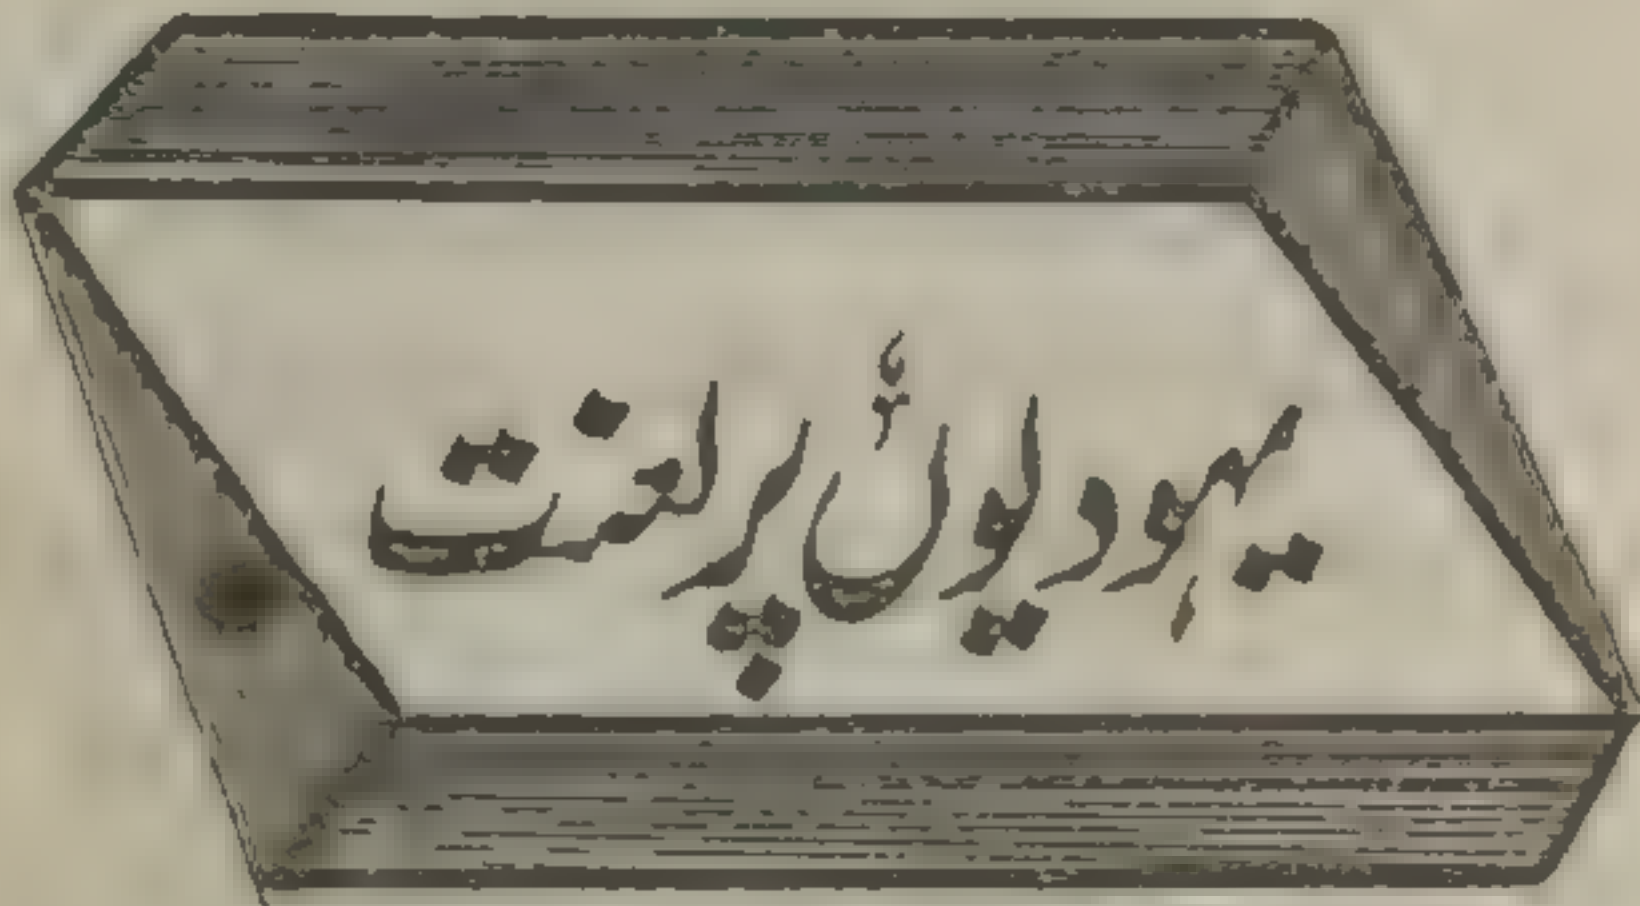 یہودیوں پر لعنت